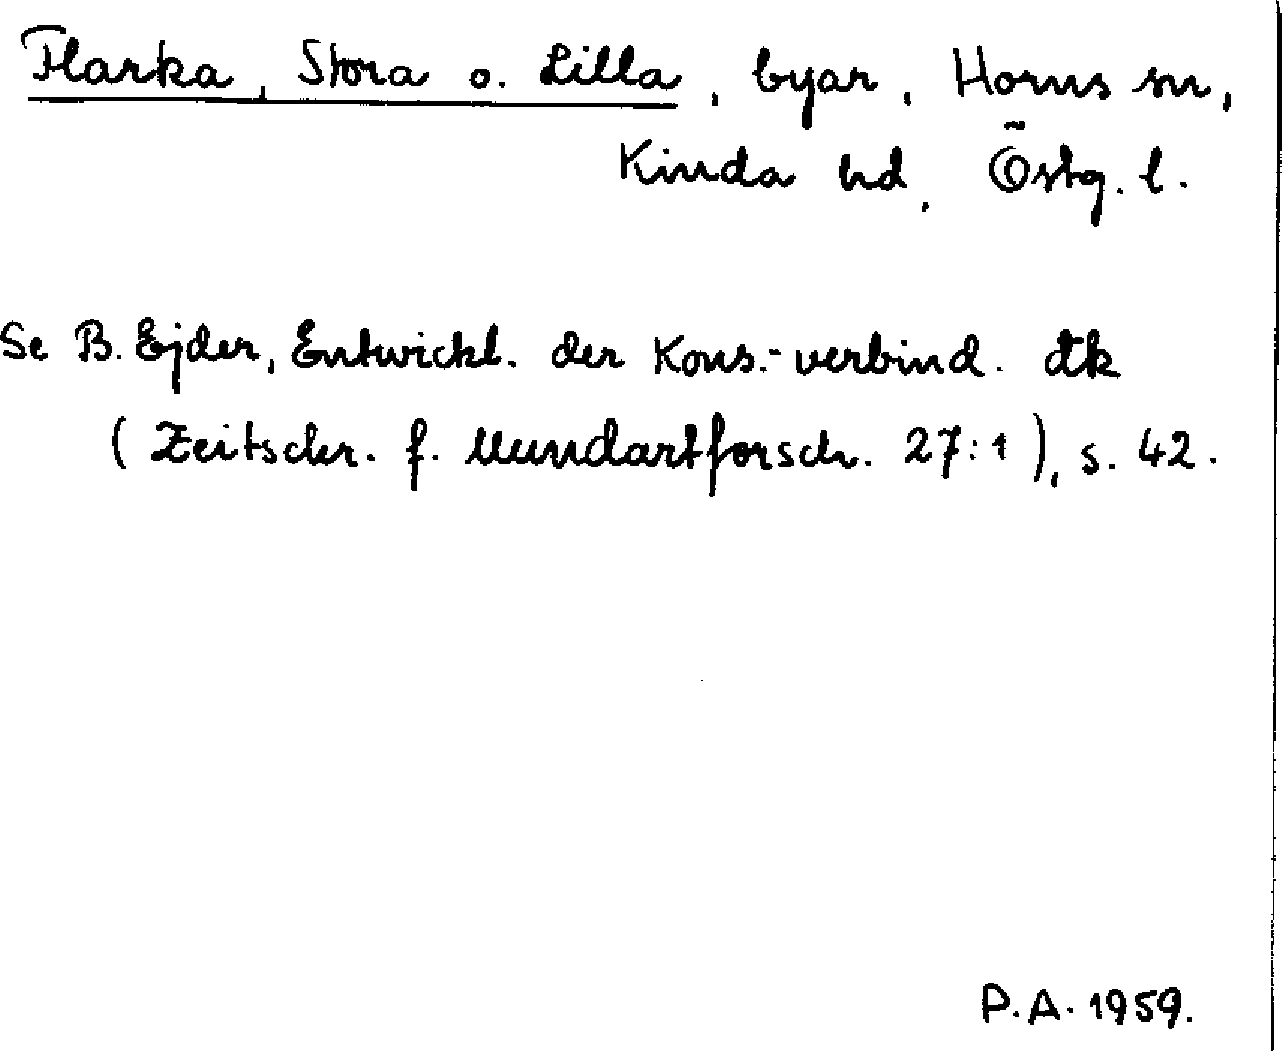 Flarka, Stora o. Lilla, byar, Horns sn,
Kinda hd, Östg. l.
Se B. Ejder, Entwickl. der Kons.-verbind. đk
(Zeitschr. f. Mundartforsch. 27:1), s. 42.
P.A. 1959.